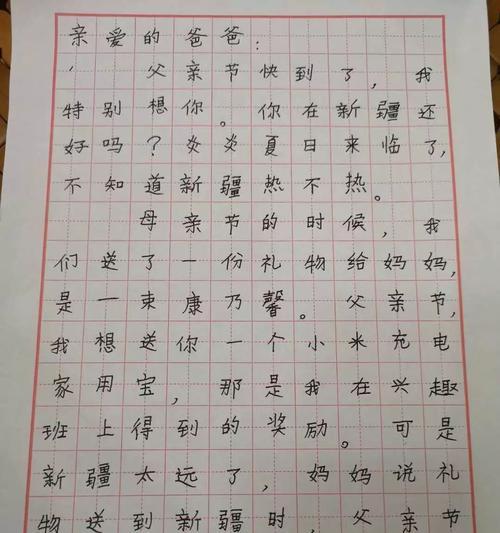 亲爱的爸爸：
父亲节快到了，我
特别想你。你在新疆还
好吗？炎炎夏日来临了，
不知道新疆热不热。
母亲节的时候，我
们送了一份礼物给妈妈，
是一束康乃馨。父亲节，
我想送你一个小米充电
家用宝，那是我在兴趣
班上得到的奖励。可是
新疆太远了，妈妈说礼
物送到新疆时，父亲节